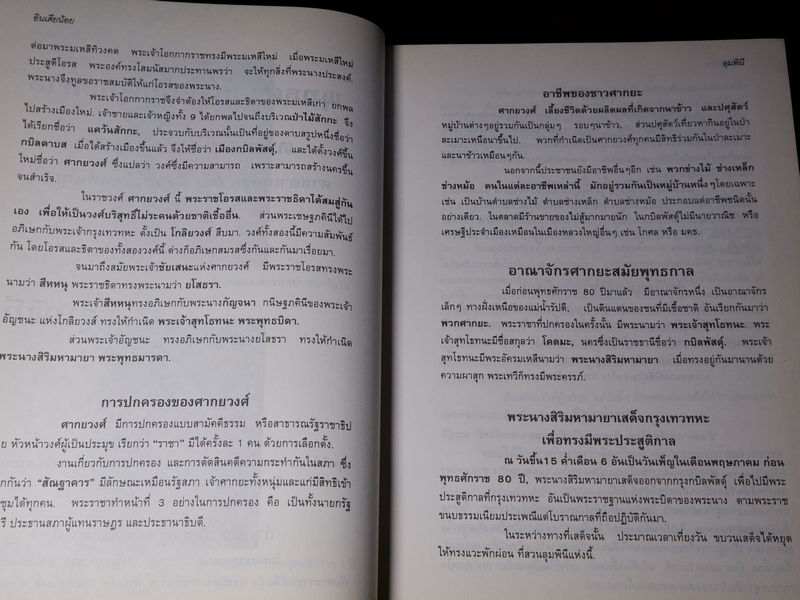 อินเดียน้อย
ต่อมาพระมเหสีทิวงคต พระเจ้าโอกกากราชทรงมีพระมเหสีใหม่ เมื่อพระมเหสีใหม่
ประสูติโอรส พระองค์ทรงโสมนัสมากประทานพรว่า จะให้ทุกสิ่งที่พระนางประสงค์.
พระนางจึงทูลขอราชสมบัติให้แก่โอรสของพระนาง.
พระเจ้าโอกกากราชจึงจำต้องให้โอรสและธิดาของพระมเหสีเก่า ยกพล
ไปสร้างเมืองใหม่. เจ้าชายและเจ้าหญิงทั้ง 9 ได้ยกไปจนถึงบริเวณป่าไม้สักกะ จึง
ได้เรียกชื่อว่า แควันสักกะ, ประจวบกับบริเวณนั้นเป็นที่อยู่ของดาบสรูปหนึ่งชื่อว่า
กบิลดาบส เมื่อได้สร้างเมืองขึ้นแล้ว จึงให้ชื่อว่า เมืองกบิลพัสดุ์, และได้ตั้งวงศ์ขึ้น
ใหม่ชื่อว่า ศากยวงศ์ ซึ่งแปลว่า วงศ์ซึ่งมีความสามารถ เพราะสามารถสร้างนครขึ้น
จนสำเร็จ.
ในราชวงศ์ ศากยวงศ์ นี้ พระราชโอรสและพระราชธิดาได้สมสู่กัน
เอง เพื่อให้เป็นวงศ์บริสุทธิ์ไม่ระคนด้วยชาติเชื้ออื่น. ส่วนพระเชษฐภคินีได้ไป
อภิเษกกับพระเจ้ากรุงเทวทหะ ตั้งเป็น โกลิยวงศ์ สืบมา. วงศ์ทั้งสองนี้มีความสัมพันธ์
กัน โดยโอรสและธิดาของทั้งสองวงศ์นี้ ต่างก็อภิเษกสมรสซึ่งกันและกันมาเรื่อยมา.
จนมาถึงสมัยพระเจ้าชัยเสนะแห่งศากยวงศ์ มีพระราชโอรสทรงพระ
นามว่า สีหหนุ พระราชธิดาทรงพระนามว่า ยโสธรา.
พระเจ้าสีหหนุทรงอภิเษกกับพระนางกัญจนา กนิษฐภคินีของพระเจ้า
อัญชนะ แห่งโกลิยวงส์ ทรงให้กำเนิด พระเจ้าสุทโธทนะ พระพุทธบิดา.
ส่วนพระเจ้าอัญชนะ ทรงอภิเษกกับพระนางยโสธรา ทรงให้กำเนิด
พระนางสิริมหามายา พระพุทธมารดา.
การปกครองของศากยวงศ์
ศากยวงศ์ มีการปกครองแบบสามัคคีธรรม หรือสาธารณรัฐราชาธิป
ย หัวหน้าวงศ์ผู้เป็นประมุข เรียกว่า "ราชา" มีได้ครั้งละ 1 คน ด้วยการเลือกตั้ง.
งานเกี่ยวกับการปกครอง และการตัดสินคดีความกระทำกันในสภา ซึ่ง
กกันว่า "สัณฐาคาร" มีลักษณะเหมือนรัฐสภา เจ้าศากยะทั้งหนุ่มและแก่มีสิทธิเข้า
ชุมได้ทุกคน. พระราชาทำหน้าที่ 3 อย่างในการปกครอง คือ เป็นทั้งนายกรัฐ
รี ประธานสภาผู้แทนราษฎร และประธานาธิบดี.
ลุมพินี
อาชีพของชาวศากยะ
ศากยวงศ์ เลี้ยงชีวิตด้วยผลิตผลที่เกิดจากนาข้าว และปศุสัตว์
หมู่บ้านต่างๆอยู่รวมกันเป็นกลุ่มๆ รอบๆนาข้าว, ส่วนปศุสัตว์เที่ยวหากินอยู่ในป่า
ละเมาะเหนือนาขึ้นไป. พวกที่กำเนิดเป็นศากยวงศ์ทุกคนมีสิทธิร่วมกันในป่าละเมาะ
และนาข้าวเหมือนๆกัน.
นอกจากนี้ประชาชนยังมีอาชีพอื่นๆอีก เช่น พวกช่างไม้ ช่างเหล็ก
ช่างหม้อ คนในแต่ละอาชีพเหล่านี้ มักอยู่รวมกันเป็นหมู่บ้านหนึ่งๆโดยเฉพาะ
เช่น เป็นบ้านตำบลช่างไม้ ตำบลช่างเหล็ก ตำบลช่างหม้อ ประกอบแต่อาชีพชนิดนั้น
อย่างเดียว. ในตลาดมีร้านขายของไม่สู้มากมายนัก ในกบิลพัสดุ์ไม่มีนายวาณิช หรือ
เศรษฐีประจำเมืองเหมือนในเมืองหลวงใหญ่อื่นๆ เช่น โกศล หรือ มคธ.
อาณาจักรศากยะสมัยพุทธกาล
เมื่อก่อนพุทธศักราช 80 ปีมาแล้ว มีอาณาจักรหนึ่ง เป็นอาณาจักร
เล็กๆ ทางฝั่งเหนือของแม่น้ำรัปดี, เป็นดินแดนของชนที่มีเชื้อชาติ อันเรียกกันมาว่า
พวกศากยะ. พระราชาที่ปกครองในครั้งนั้น มีพระนามว่า พระเจ้าสุทโธทนะ. พระ
เจ้าสุทโธทนะมีชื่อสกุลว่า โคตมะ, นครซึ่งเป็นราชธานีชื่อว่า กบิลพัสดุ์. พระเจ้า
สุทโธทนะมีพระอัครมเหสีนามว่า พระนางสิริมหามายา เมื่อทรงอยู่กันมานานด้วย
ความผาสุก พระเทวีก็ทรงมีพระครรภ์.
พระนางสิริมหามายาเสด็จกรุงเทวทหะ
เพื่อทรงมีพระประสูติกาล
ณ วันขึ้น15 ค่ำเดือน 6 อันเป็นวันเพ็ญในเดือนพฤษภาคม ก่อน
พุทธศักราช 80 ปี, พระนางสิริมหามายาเสด็จออกจากกรุงกบิลพัสดุ์ เพื่อไปมีพระ
ประสูติกาลที่กรุงเทวทหะ อันเป็นพระราชฐานแห่งพระบิดาของพระนาง ตามพระราช
ขนบธรรมเนียมประเพณีแต่โบราณกาลที่ถือปฏิบัติกันมา.
ในระหว่างทางที่เสด็จนั้น ประมาณเวลาเที่ยงวัน ขบวนเสด็จได้หยุด
ให้ทรงแวะพักผ่อน ที่สวนลุมพินีแห่งนี้.